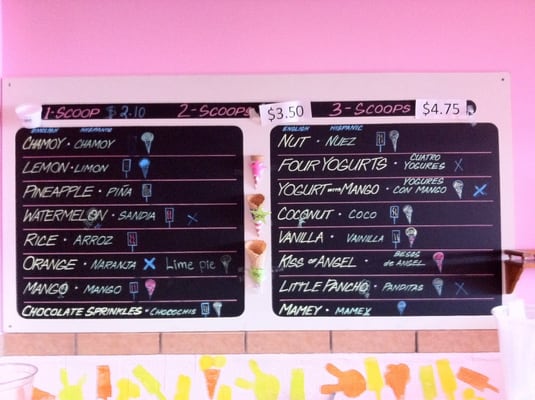 1-SCOOP $2.10 2-SCOOPS $3.50 3-SCOOPS $4.75
ENGLISH HISPANIC
CHAMOY · CHAMOY
LEMON · LIMON
PINEAPPLE · PIÑA
WATERMELON · SANDIA
RICE · ARROZ
ORANGE · NARANJA Lime pie
MANGO · MANGO
CHOCOLATE SPRINKLES · CHOCOCHIS
ENGLISH HISPANIC
NUT · NUEZ
FOUR YOGURTS · CUATRO YOGURES
YOGURT WITH MANGO · YOGURES CON MANGO
COCONUT · COCO
VANILLA · VAINILLA
KISS OF ANGEL · BESOS de ANGEL
LITTLE PANCHO · PANDITAS
MAMEY · MAMEY